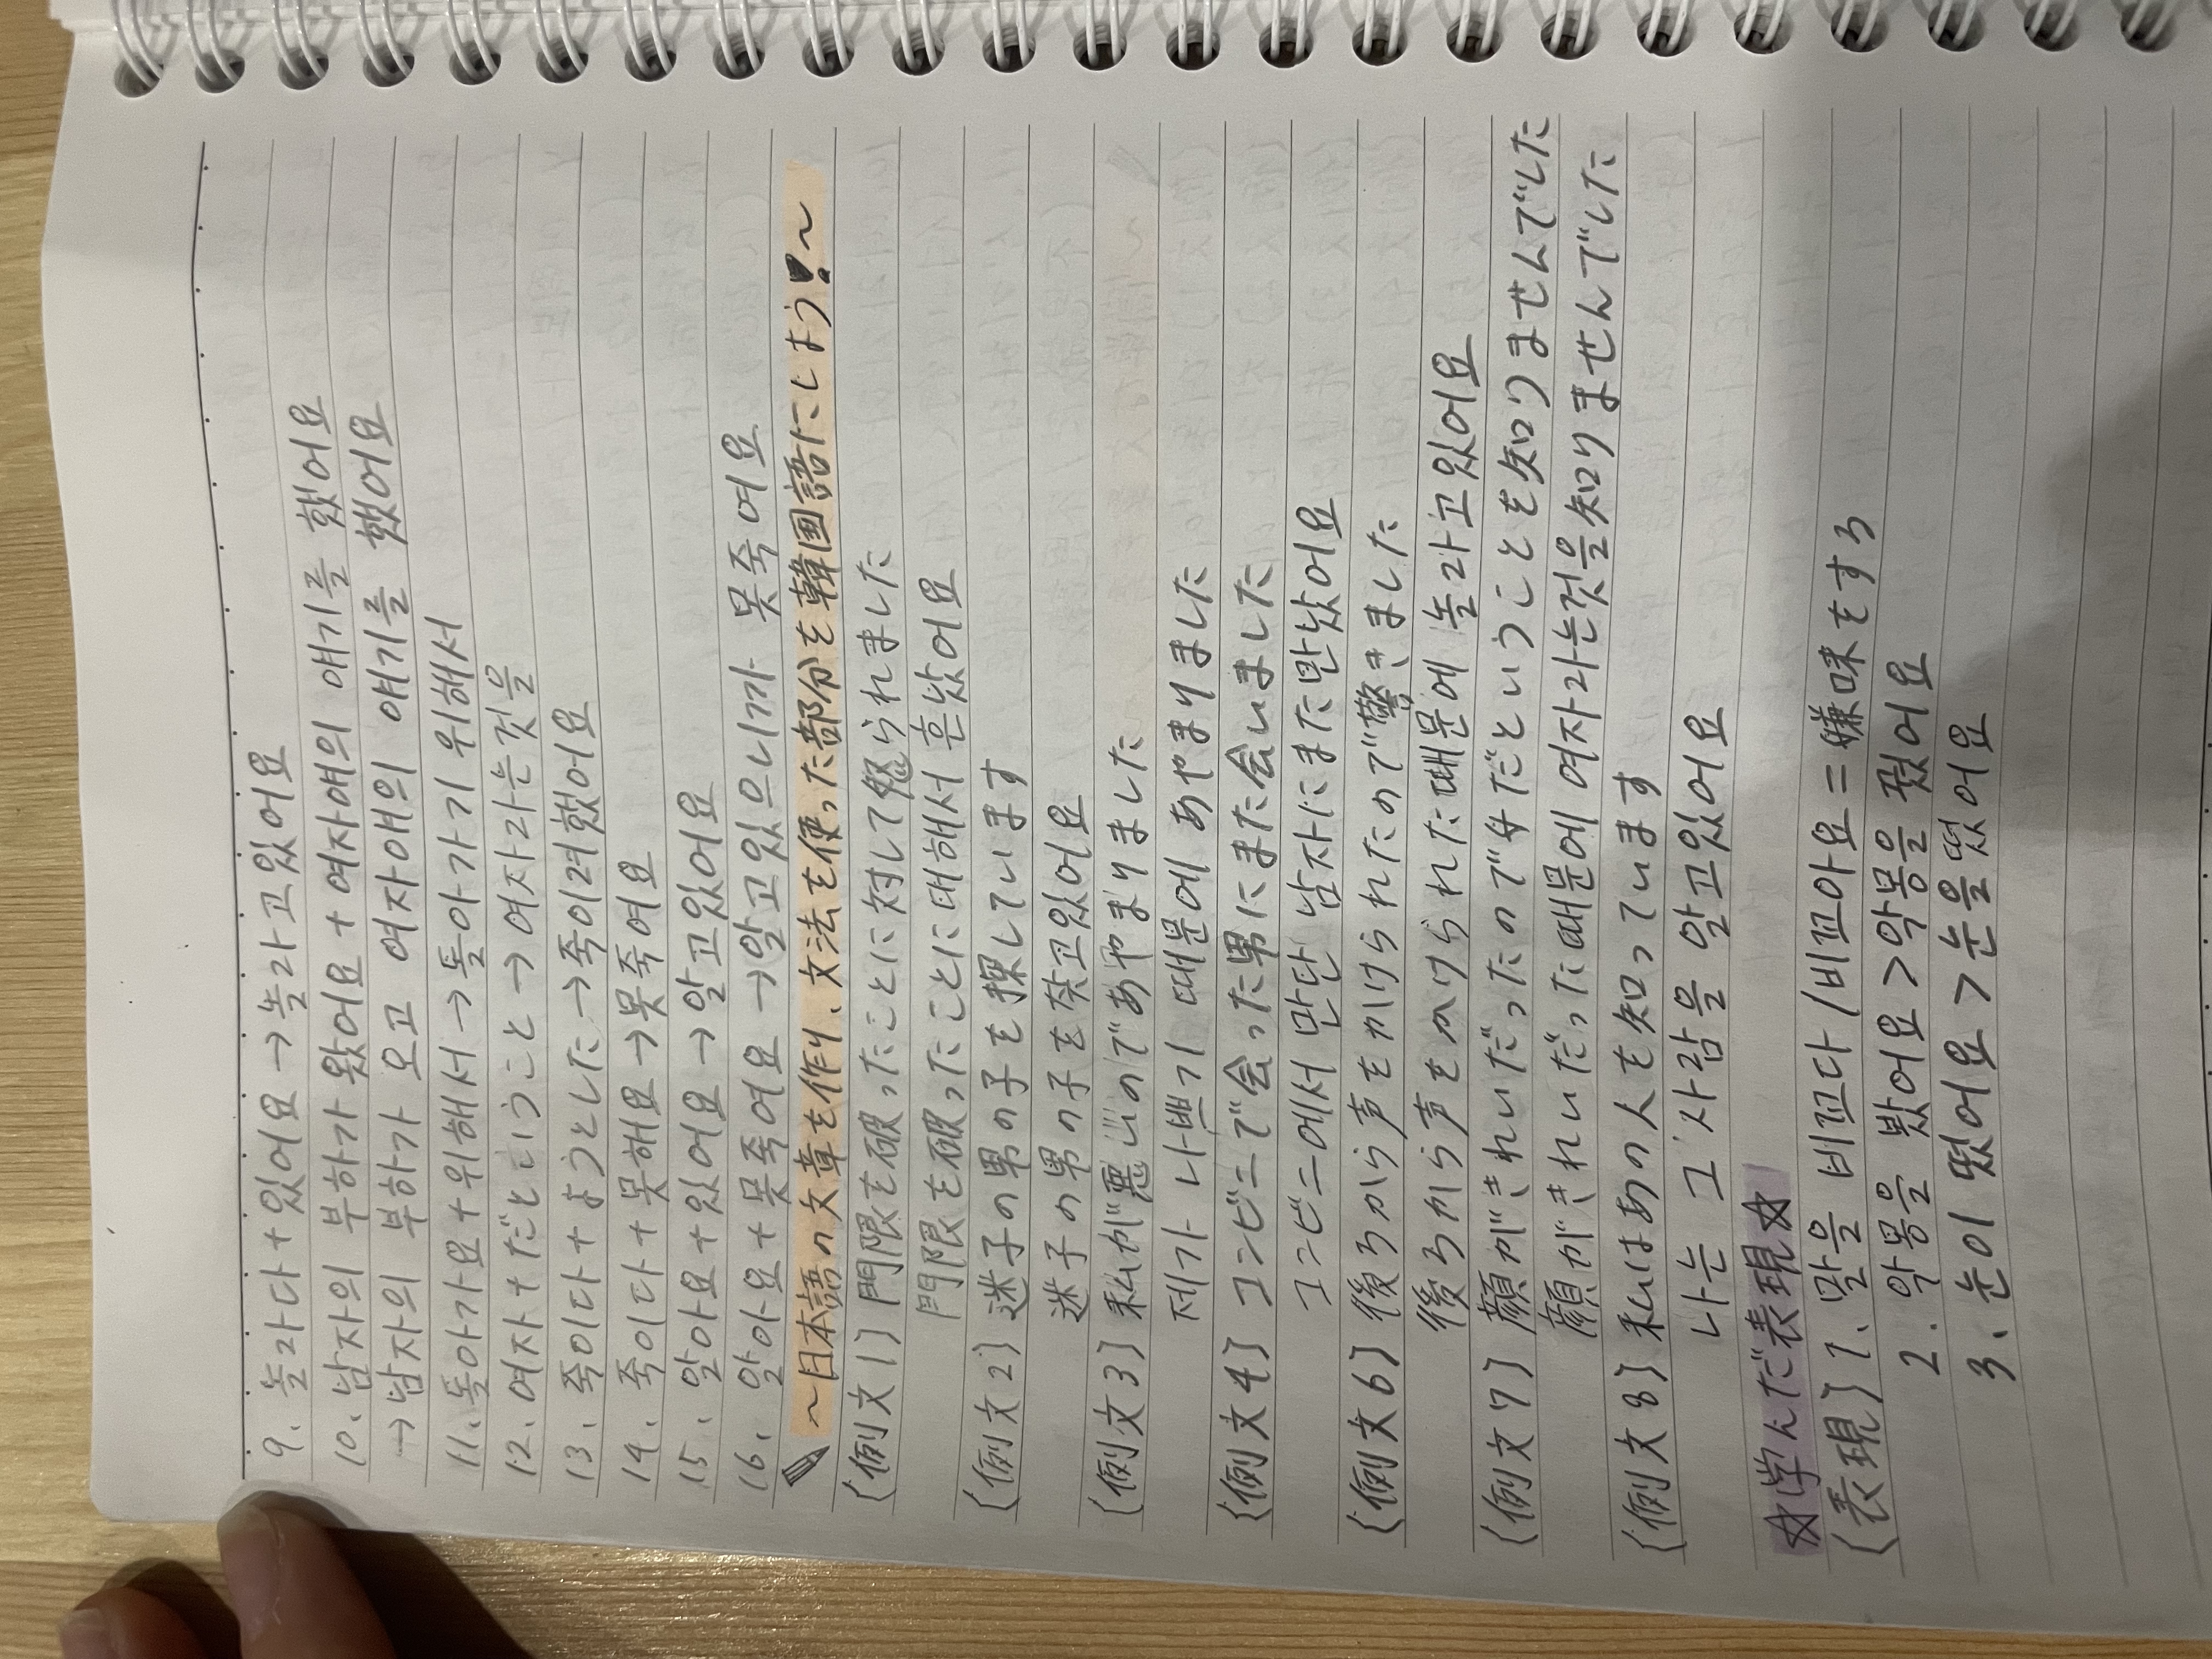 9、놀라다+있어요→놀라고있어요
10、남자의 부하가 왔어요+여자애의 얘기를 했어요
→남자의 부하가 오고 여자애의 얘기를 했어요
11、돌아가요+위해서→돌아가기 위해서
12、여자+だということ→여자라는것을
13、죽이다+ようとした→죽이려했어요
14、죽이다+못해요→못죽여요
15、알아요+있어요→알고있어요
16、알아요+못죽여요→알고있으니까 못죽여요
~日本語の文章を作り、文法を使った部分を韓国語にしよう!~
〔例文1〕門限を破ったことに対して怒られました
門限を破ったことに대해서 혼났어요
〔例文2〕迷子の男の子を探しています
迷子の男の子を찾고있어요
〔例文3〕私が悪いのであやまりました
제가 나쁘기 때문에 あやまりました
〔例文4〕コンビニで会った男にまた会いました
コンビニ에서 만단 남자にまた만났어요
〔例文6〕後ろから声をかけられたので驚きました
後ろから声をかけられた때문에 놀라고있어요
〔例文7〕顔がきれいだったので女だということを知りませんでした
顔がきれいだった때문에 여자라는것을知りませんでした
〔例文8〕私はあの人を知っています
나는 그 사람을 알고있어요
☆学んだ表現☆
〔表現〕1、말을 비꼬다/비꼬아요=嫌味をする
2、악몽을 봤어요>악몽을 꿨어요
3、눈이 떴어요>눈을떴어요